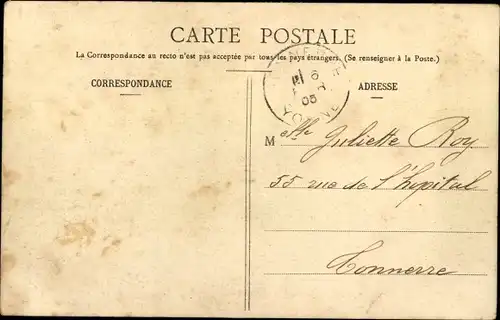 CARTE POSTALE
La Correspondance au recto n'est pas acceptée par tous les pays étrangers. (Se renseigner à la Poste.)
CORRESPONDANCE
ADRESSE
6
05
YONNE
Melle Juliette Roy
55 rue de l'hôpital
Tonnerre